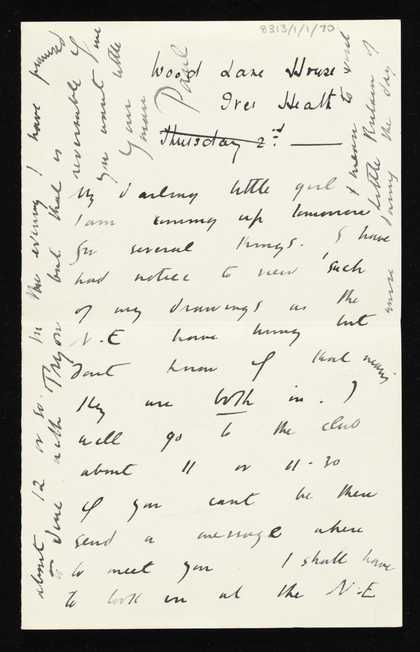 8313/1/1/70
Wood Lane House
Iver Heath
Thursday 2nd.
My darling little girl
I am coming up tomorrow
for several things. I have
had notice to view such
of my drawings as the
N.E have hung but
dont know if that means
they are both in. I
will go to the club
about 11 or 11-30
if you cant be there
send a message where
to meet you I shall have
to look in at the N-E
about 12 or so. In the evening I have promised
to dine with Tryon but that is
reversable if
you want me
Your little
man
Paul
I mean to send
little
during the day